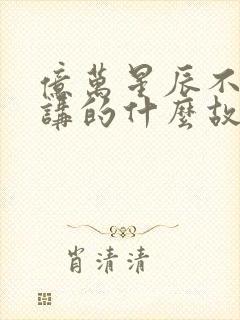 億萬星辰不
講的什麼故
肖清清